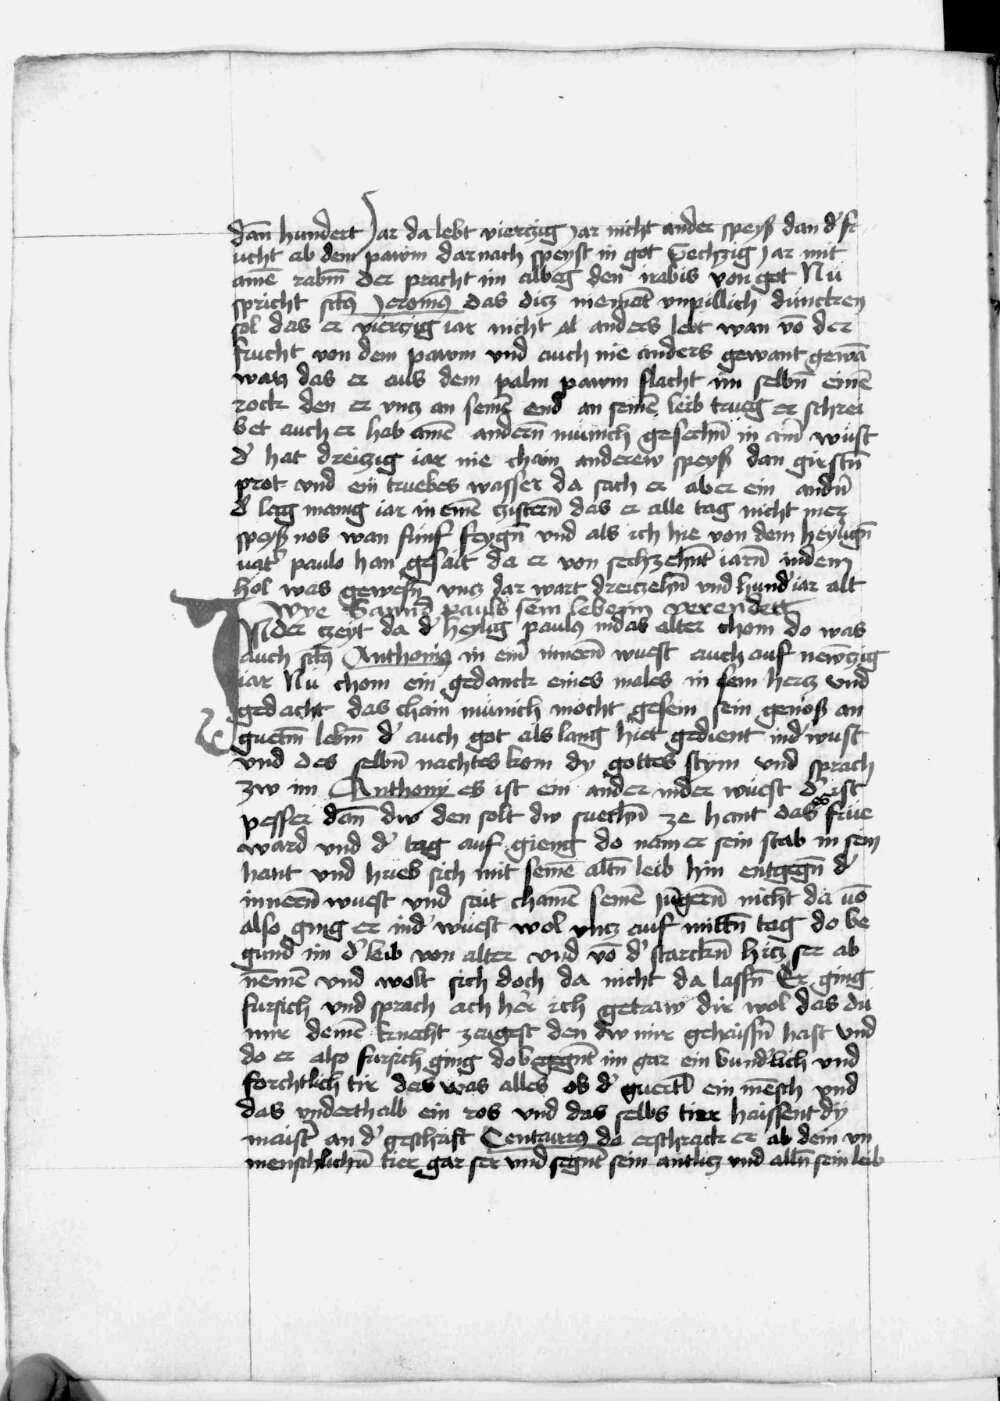 dan̄ hundert Jar da lebt vierczig jar nicht ander speyß dan d' fr
ucht ab dem pawm darnach speyst in got Sechzig jar mit
ainē rabm̄ der pracht im albeg den irabis von got Nu
spricht sctūs Jeromūs das dicz niemāt vnpillich duncken
sol das er vierczig iar nicht al anders lebt wan vō der
frucht von dem pawm vnd auch nie anders gewant gewā
wan das er aus dem palm pawm flacht im selbn̄ einē
rock den er vncz an seinē end an seinē leib trueg er schrei
bet auch er hab ainē andern̄ münich gesechn̄ in ain̄ wüst
d' hat dreizig iar nie chain anderew speyß dan girstn̄
prot vnd ein truebes wasser da sach er aber ein andn̄
d' lag manig iar in einē czistern̄ das er alle tag nicht mer
speyß nos wan fünf feygn̄ vnd als ich hie von dem heylign̄
uat' paulo han gesait da er von sechzehn̄t iarn̄ indem
hol was gewesn̄ vncz dar wart dreiczehn̄ vnd hund' iar alt
Wye Sannd pauls sein lebenn verendett
IN der czeyt da d' heylig paulus indas alter chom do was
auch sctūs Anthonius in ein̄ innern̄ wuest auch auf newnczig
iar Nu chom ein gedanck eines males in sein hercz vnd
gedacht das chain münich mocht gesein sein genoß an
guetm̄ lebm̄ d' auch got als lang hiet gedient ind' wust
vnd des selbn̄ nachtes kom dy gottes stym vnd sprach
zw im Anthony es ist ein ander inder wüest d' ist
pesser dan̄ dw den solt dw suechn̄ ze hant das frue
ward vnd d' tag auf gieng do nam er sein stab in sein
hant vnd hueb sich mit seinē altn̄ leib hin entgegn̄ d'
innern̄ wuest vnd sait chainē seinē jūgern̄ nicht da uō
also ging er ind' wüest wol vncz auf mittn̄ tag do be
gund im d' leib von alter vnd vō d' starckn̄ hicz ser ab
nēmen vnd wolt sich doch da nicht da lassn̄ Er ging
fursich vnd sprach ach her ich getraw dir wol das du
mir deinē knecht zeugest den dw mir gehaissn̄ hast vnd
do er also fursich ging do begegn̄t im gar ein bund'lich vnd
forchtlich tir das was alles ob d' guertl ein mēsch vnd
das vnderthalb ein ros vnd das selbs tier haissent dy
maist' an d' geschrift Centaurus do erschrack er ab dem vn
menschlichn̄ tier gar ser vnd segn̄t sein antlicz vnd alln̄ sein leib